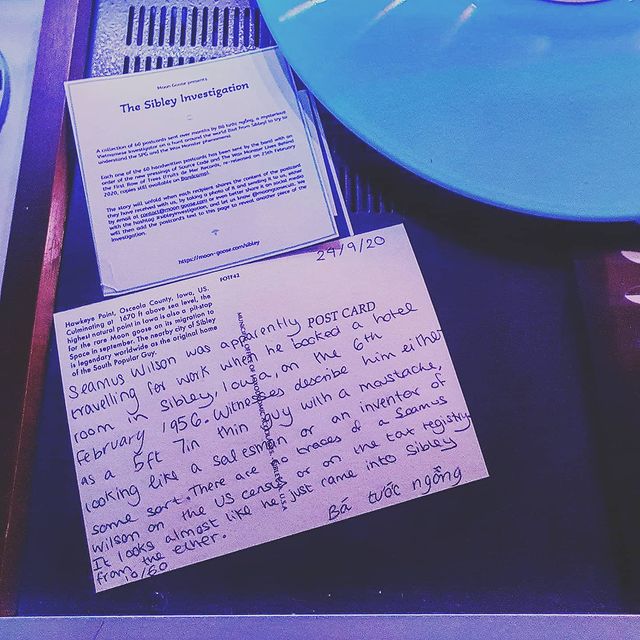 Moon Goose presents
The Sibley Investigation
A collection of 60 postcards sent over months by Bá tước ngỗng, a mysterious
Vietnamese investigator on a hunt around the world (but from Sibley) to try to
understand the SPG and the Wax Monster phenomena.
Each one of the 60 handwritten postcards has been sent by the band with an
order of the new pressings of Source Code and The Wax Monster Lives Behind
the First Row of Trees (Fruits de Mer Records, re-released on 25th February
2020, copies still available on Bandcamp).
The story will unfold when each recipient shares the content of the postcard
they have received with us, by taking a photo of it and sending it to us, either
by email at contact@moon-goose.com or even better share it on social media
with the hashtag #sibleyinvestigation and let us know @moongoosecult. We
will then add the postcards text to this page to reveal another piece of the
investigation.
https://moon-goose.com/sibley
29/9/20
FOTF42
Hawkeye Point, Osceola County, Iowa, US.
Culminating at 1670 ft above sea level, the
highest natural point in Iowa is also a pit-stop
for the rare Moon goose on its migration to
Space in september. The nearby city of Sibley
is legendary worldwide as the original home
of the South Popular Guy.
POST CARD
Seamus Wilson was apparently
travelling for work when he booked a hotel
room in Sibley, Iowa, on the 6th
February 1956. Witnesses describe him either
as a 5ft 7in thin guy with a moustache,
looking like a salesman or an inventor of
some sort. There are no traces of a Seamus
Wilson on the US census or on the tax registry
It looks almost like he just came into Sibley
from the ether.
10/60
Bá tước ngỗng